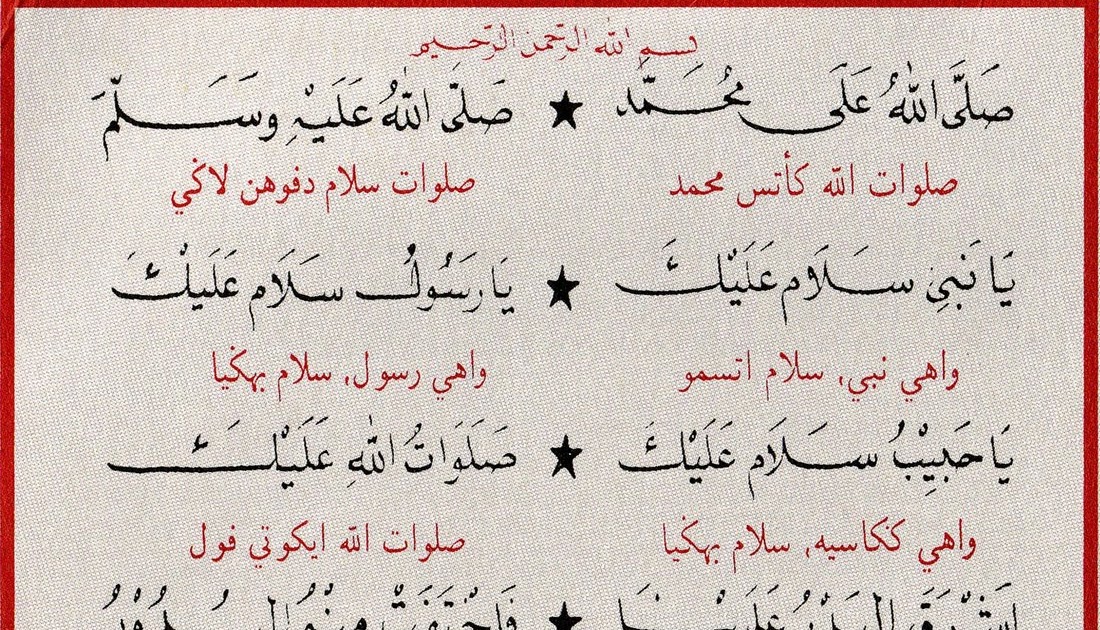 بسم الله الرحمن الرحيم
صَلَّى اللهُ عَلَى مُحَمَّد ★ صَلَّى اللهُ عَلَيْهِ وَسَلَّمَ
صلوات الله كأتس محمد صلوات سلام دفوهن لاݢي
يَا نَبِي سَلَام عَلَيْكَ ★ يَا رَسُولْ سَلَام عَلَيْكَ
واهي نبي, سلام اتسمو واهي رسول, سلام بهݢيا
يَا حَبِيْبُ سَلَام عَلَيْكَ ★ صَلَوَاتُ اللهِ عَلَيْكَ
واهي ككاسيه, سلام بهݢيا صلوات الله ايكوتي فول